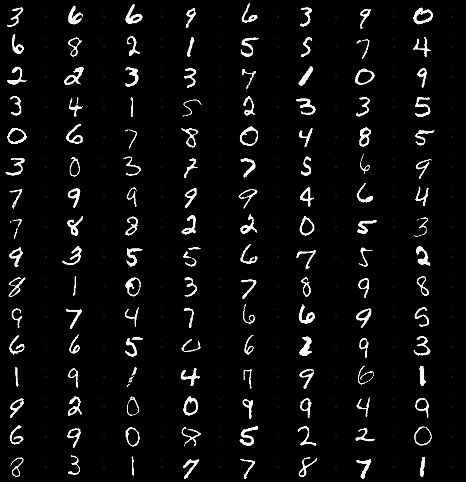 3 6 6 9 6 3 9 0
6 8 2 1 5 5 7 4
2 2 3 3 7 1 0 9
3 4 1 5 2 3 3 5
0 6 7 8 0 4 8 5
3 0 3 7 7 5 6 9
7 9 9 9 9 4 6 4
7 8 8 2 2 0 5 3
9 3 5 5 6 7 5 2
8 1 0 3 7 8 9 8
9 7 4 7 6 6 9 5
6 6 5 0 6 2 9 3
1 9 1 4 7 9 6 1
9 2 0 0 9 9 4 9
6 9 0 8 5 2 2 0
8 3 1 7 7 8 7 1